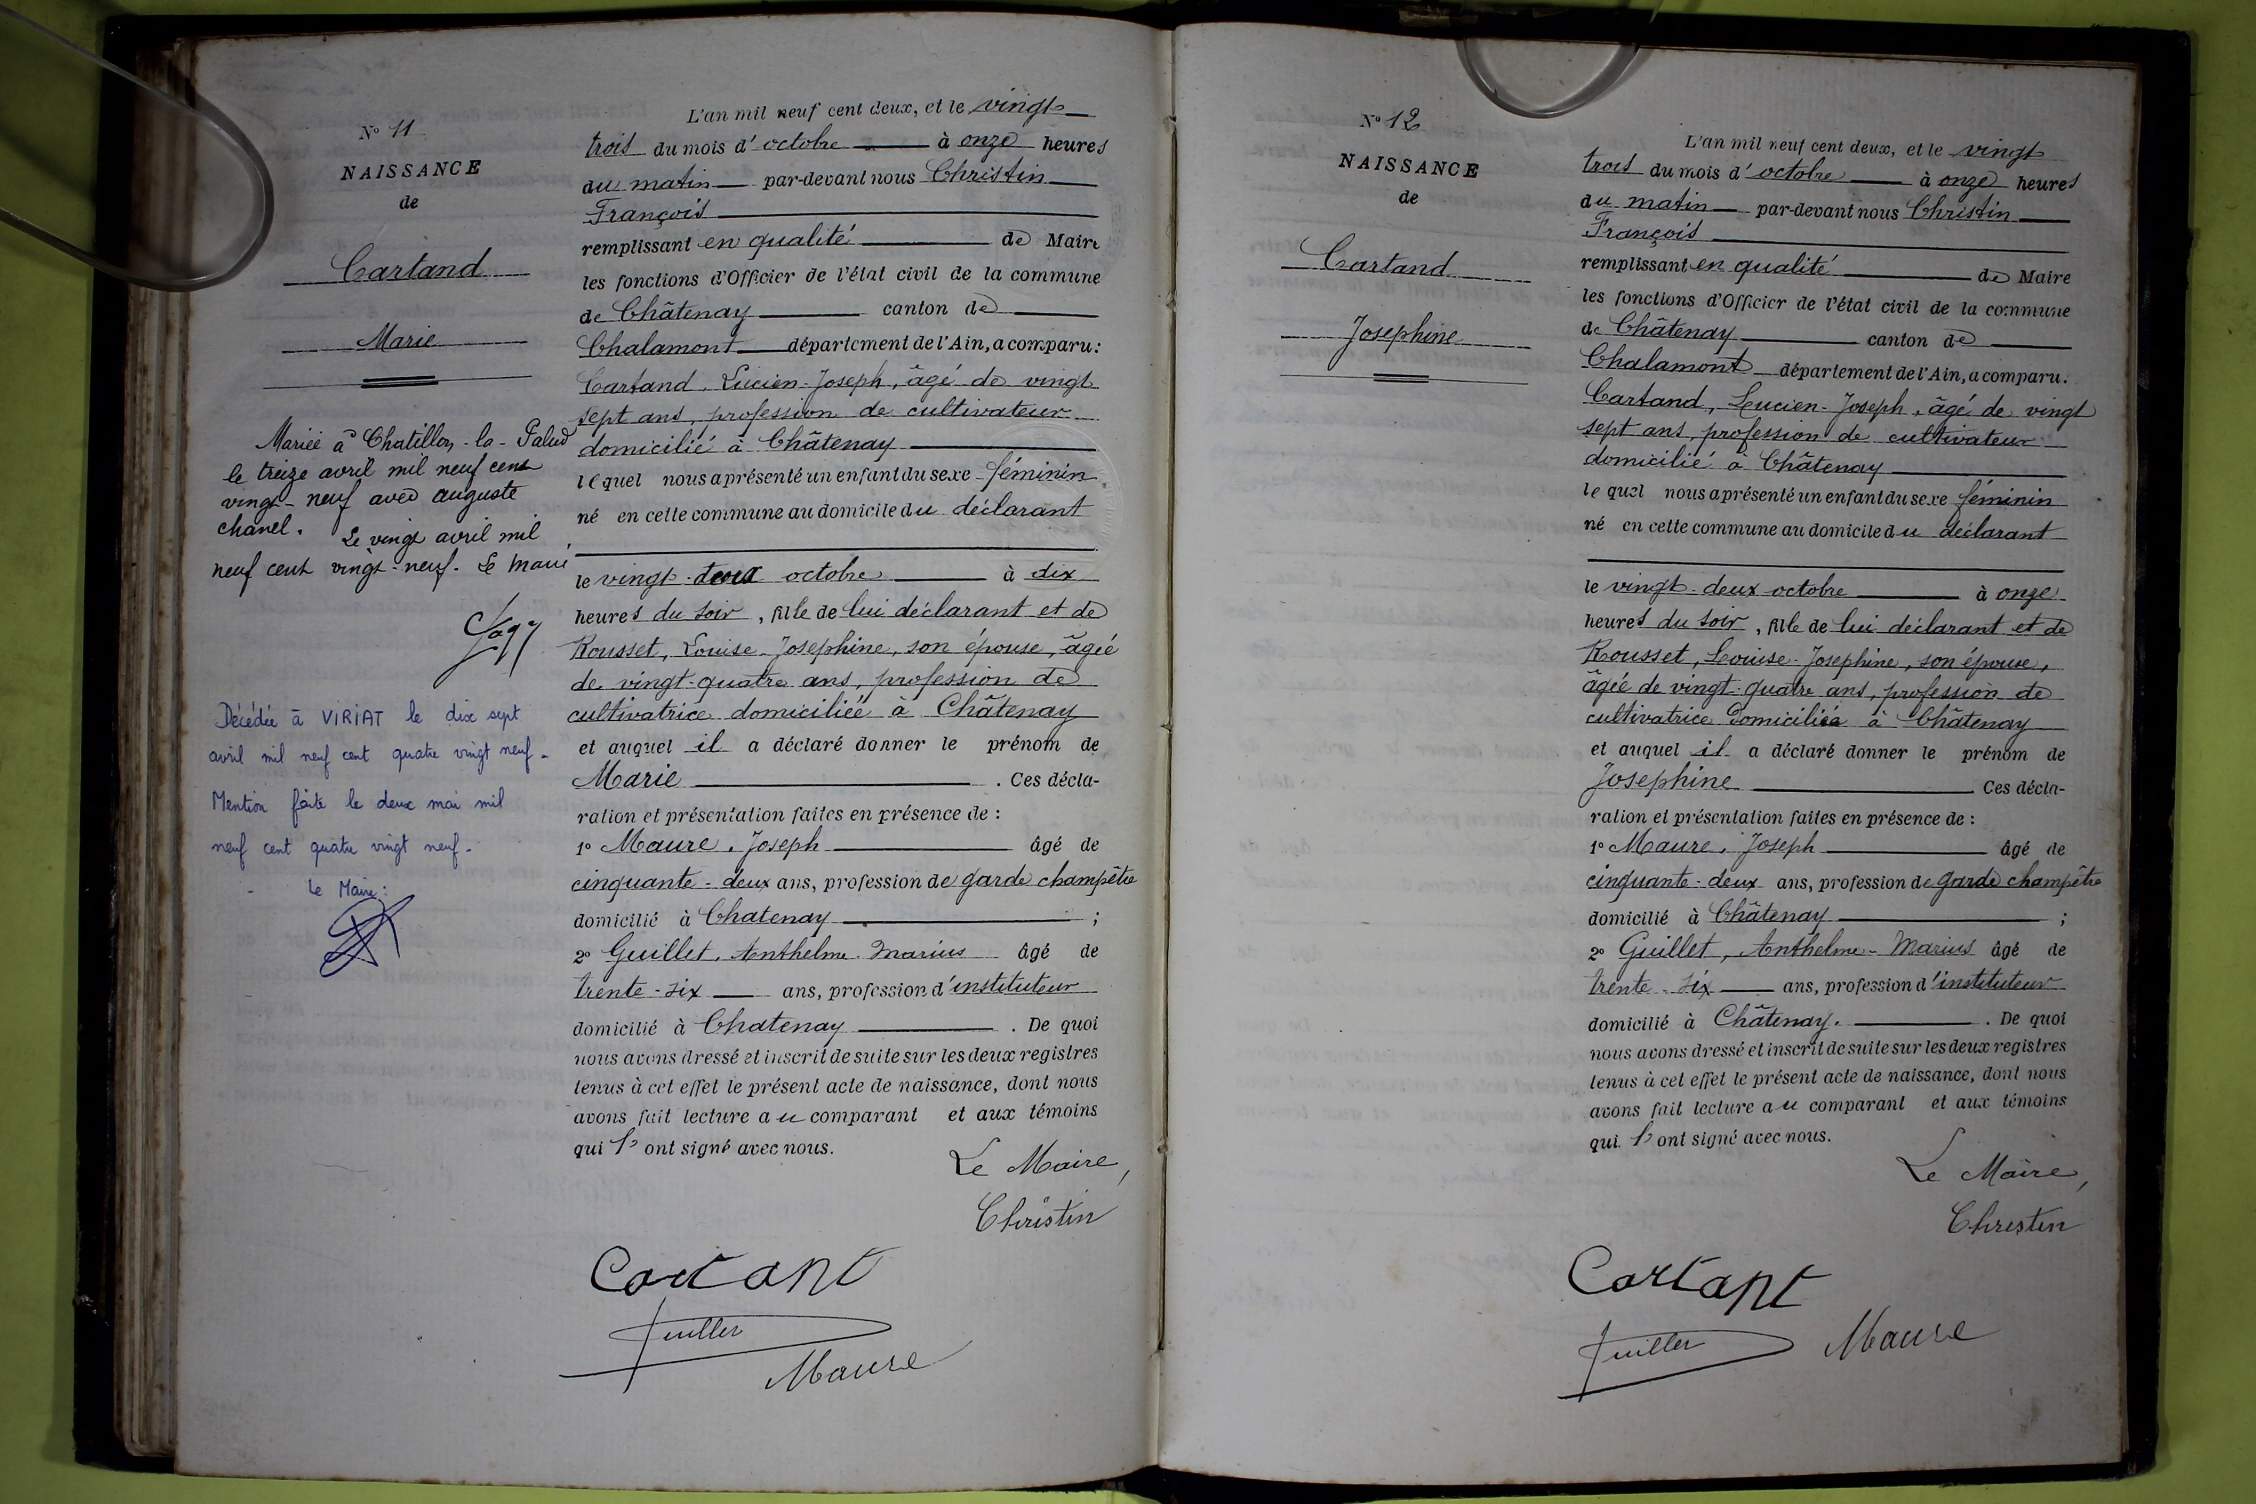 N° 11
NAISSANCE
de
Cartand
Marie
Mariée à Chatillon-la-Palud
le treize avril mil neuf cent
vingt-neuf avec auguste
chanel. Le vingt avril mil
neuf cent vingt-neuf. Le Maire
Décédée à VIRIAT le dix sept
avril mil neuf cent quatre vingt neuf.
Mention faite le deux mai mil
neuf cent quatre vingt neuf.
Le Maire:
L'an mil neuf cent deux, et le vingt
trois du mois d'octobre à onze heures
du matin par-devant nous Christin
François
remplissant en qualité de Maire
les fonctions d'Officier de l'état civil de la commune
de Châtenay canton de
Chalamont département de l'Ain, a comparu:
Cartand, Lucien-Joseph, âgé de vingt
sept ans, profession de cultivateur
domicilié à Châtenay
lequel nous a présenté un enfant du sexe féminin
né en cette commune au domicile du déclarant
le vingt-deux octobre à dix
heures du soir, fille de lui déclarant et de
Rousset, Louise-Josephine, son épouse, âgée
de vingt-quatre ans, profession de
cultivatrice domiciliée à Châtenay
et auquel il a déclaré donner le prénom de
Marie. Ces décla-
ration et présentation faites en présence de :
1° Maure, Joseph âgé de
cinquante-deux ans, profession de garde champêtre
domicilié à Chatenay ;
2° Guillet, Anthelme Marius âgé de
trente-six ans, profession d'instituteur
domicilié à Chatenay. De quoi
nous avons dressé et inscrit de suite sur les deux registres
tenus à cet effet le présent acte de naissance, dont nous
avons fait lecture au comparant et aux témoins
qui l'ont signé avec nous.
Le Maire,
Christin
Cartant
Guillet
Maure
N° 12
NAISSANCE
de
Cartand
Josephine
L'an mil neuf cent deux, et le vingt
trois du mois d'octobre à onze heures
du matin par-devant nous Christin
François
remplissant en qualité de Maire
les fonctions d'Officier de l'état civil de la commune
de Châtenay canton de
Chalamont département de l'Ain, a comparu:
Cartand, Lucien-Joseph, âgé de vingt
sept ans, profession de cultivateur
domicilié à Châtenay
lequel nous a présenté un enfant du sexe féminin
né en cette commune au domicile du déclarant
le vingt-deux octobre à onze
heures du soir, fille de lui déclarant et de
Rousset, Louise-Josephine, son épouse,
âgée de vingt-quatre ans, profession de
cultivatrice domiciliée à Châtenay
et auquel il a déclaré donner le prénom de
Josephine Ces décla-
ration et présentation faites en présence de :
1° Maure, Joseph âgé de
cinquante-deux ans, profession de garde champêtre
domicilié à Châtenay ;
2° Guillet, Anthelme-Marius âgé de
trente-six ans, profession d'instituteur
domicilié à Châtenay. De quoi
nous avons dressé et inscrit de suite sur les deux registres
tenus à cet effet le présent acte de naissance, dont nous
avons fait lecture au comparant et aux témoins
qui l'ont signé avec nous.
Le Maire,
Christin
Cartant
Guillet Maure